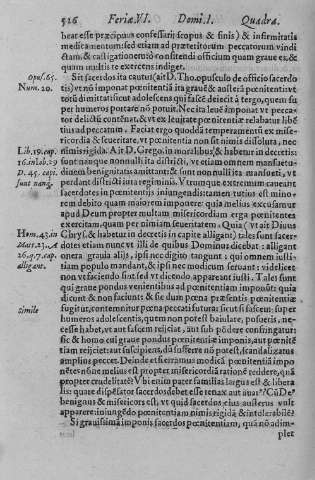 526 Feria.VI. Domi.I. Quadra.
beat esse præcipuns confessarij scopus & finis) & infirmitatis
medicamentum: sed etiam ad præteritorum peccatorum vindi
ctam, & castigationem cõfitendi officium quam graue ex, &
quam multis te exercens indiget.
Opus.65. Sit sacerdos ita cautus (ait D. Tho. opusculo de officio sacerdo
Num. 20. tis) vt nõ imponat pœnitentiã ita grauẽ & austerã pœnitenti: vt
totũ dimittat: sicut adolescens qui fascẽ deiecit à tergo, quem su
per humeros portare nõ potuit. Nec ita leuẽ imponat vt pecca-
tor delictũ contẽnat, & vt ex leuitate pœnitentiæ relabatur libẽ
tius ad peccatum. Faciat ergo quoddã temperamentũ ex miseri
cordia & seueritate, vt pœnitentia non sit nimis dissoluta, nec
Lib.19.cap. nimis rigida. Ait D. Grego. in moralibus, & habetur in decretis:
16.in Iob.29 sunt nanque nonnulli ita districti, vt etiam omnem mansuetu-
D.45.capi. dinem benignitatis amittant: & sunt nonnulli ita mansueti, vt
sunt nanq. perdant districti iura regiminis. Vtrumque extremum caueant
sacerdotes in pœnitentijs iniungendis tamen tutius est mino-
rem debito quam maiorem imponere: quia melius excusamur
apud Deum propter multam misericordiam erga pœnitentes
exercitam, quam per nimiam seueritatem. Quia (vt ait Diuus
Hom.43.in Chrys. & habetur in decretis in capite alligant) tales sunt sacer
Mat.23. dotes etiam nunc vt illi de quibus Dominus dicebat: alligant
26.q.7.cap. onera grauia alijs, ipsi nec digito tangunt: qui omnem iusti-
alligant. tiam populo mandant, & ipsi nec modicum seruant: videlicet
non vt faciendo sint sed vt dicendo appareant iusti. Tales sunt
qui graue pondus venientibus ad pœnitentiam imponũt: quia
dicunt & non faciunt: & sic dum pœna præsentis pœnitentiæ
Simile fugitur, contemnitur pœna peccati futura: sicut si fascem super
humeros adolescentis, quem non potest baiulare, posueris, ne-
cesse habet, vt aut fascem reijciat, aut sub põdere confringatur:
sic & homo cui graue pondus pœnitentiæ imponis, aut pœniten
tiam reijciet: aut suscipiens, dũ sufferre nõ potest, scandalizatus
amplius peccet. Deinde etsi erramus modicã pœnitentiã impo
nẽtes: nõne melius est propter misericordiã rationẽ reddere, quã
propter crudelitatẽ? Vbi enim pater familias largus est & libera
lis: quare dispẽsator sacerdos debet esse tenax aut auarus? Cũ De'
benignus & misericors est, vt quid sacerdos eius austerus vult
apparere: iniungẽdo pœnitentiam nimis rigidã & intolerabilẽ?
Si grauissimã imponis sacerdos pœnitentiam, quã nõ adim-
plet